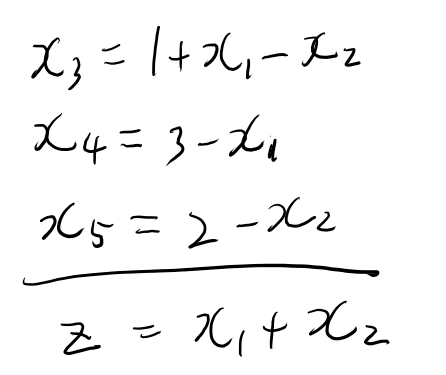 x₃ = 1 + x₁ - x₂
x₄ = 3 - x₁
x₅ = 2 - x₂
z = x₁ + x₂